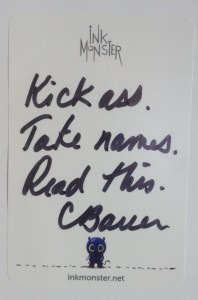 INK
MONSTER
Kick ass.
Take names.
Read this.
CBauer
inkmonster.net